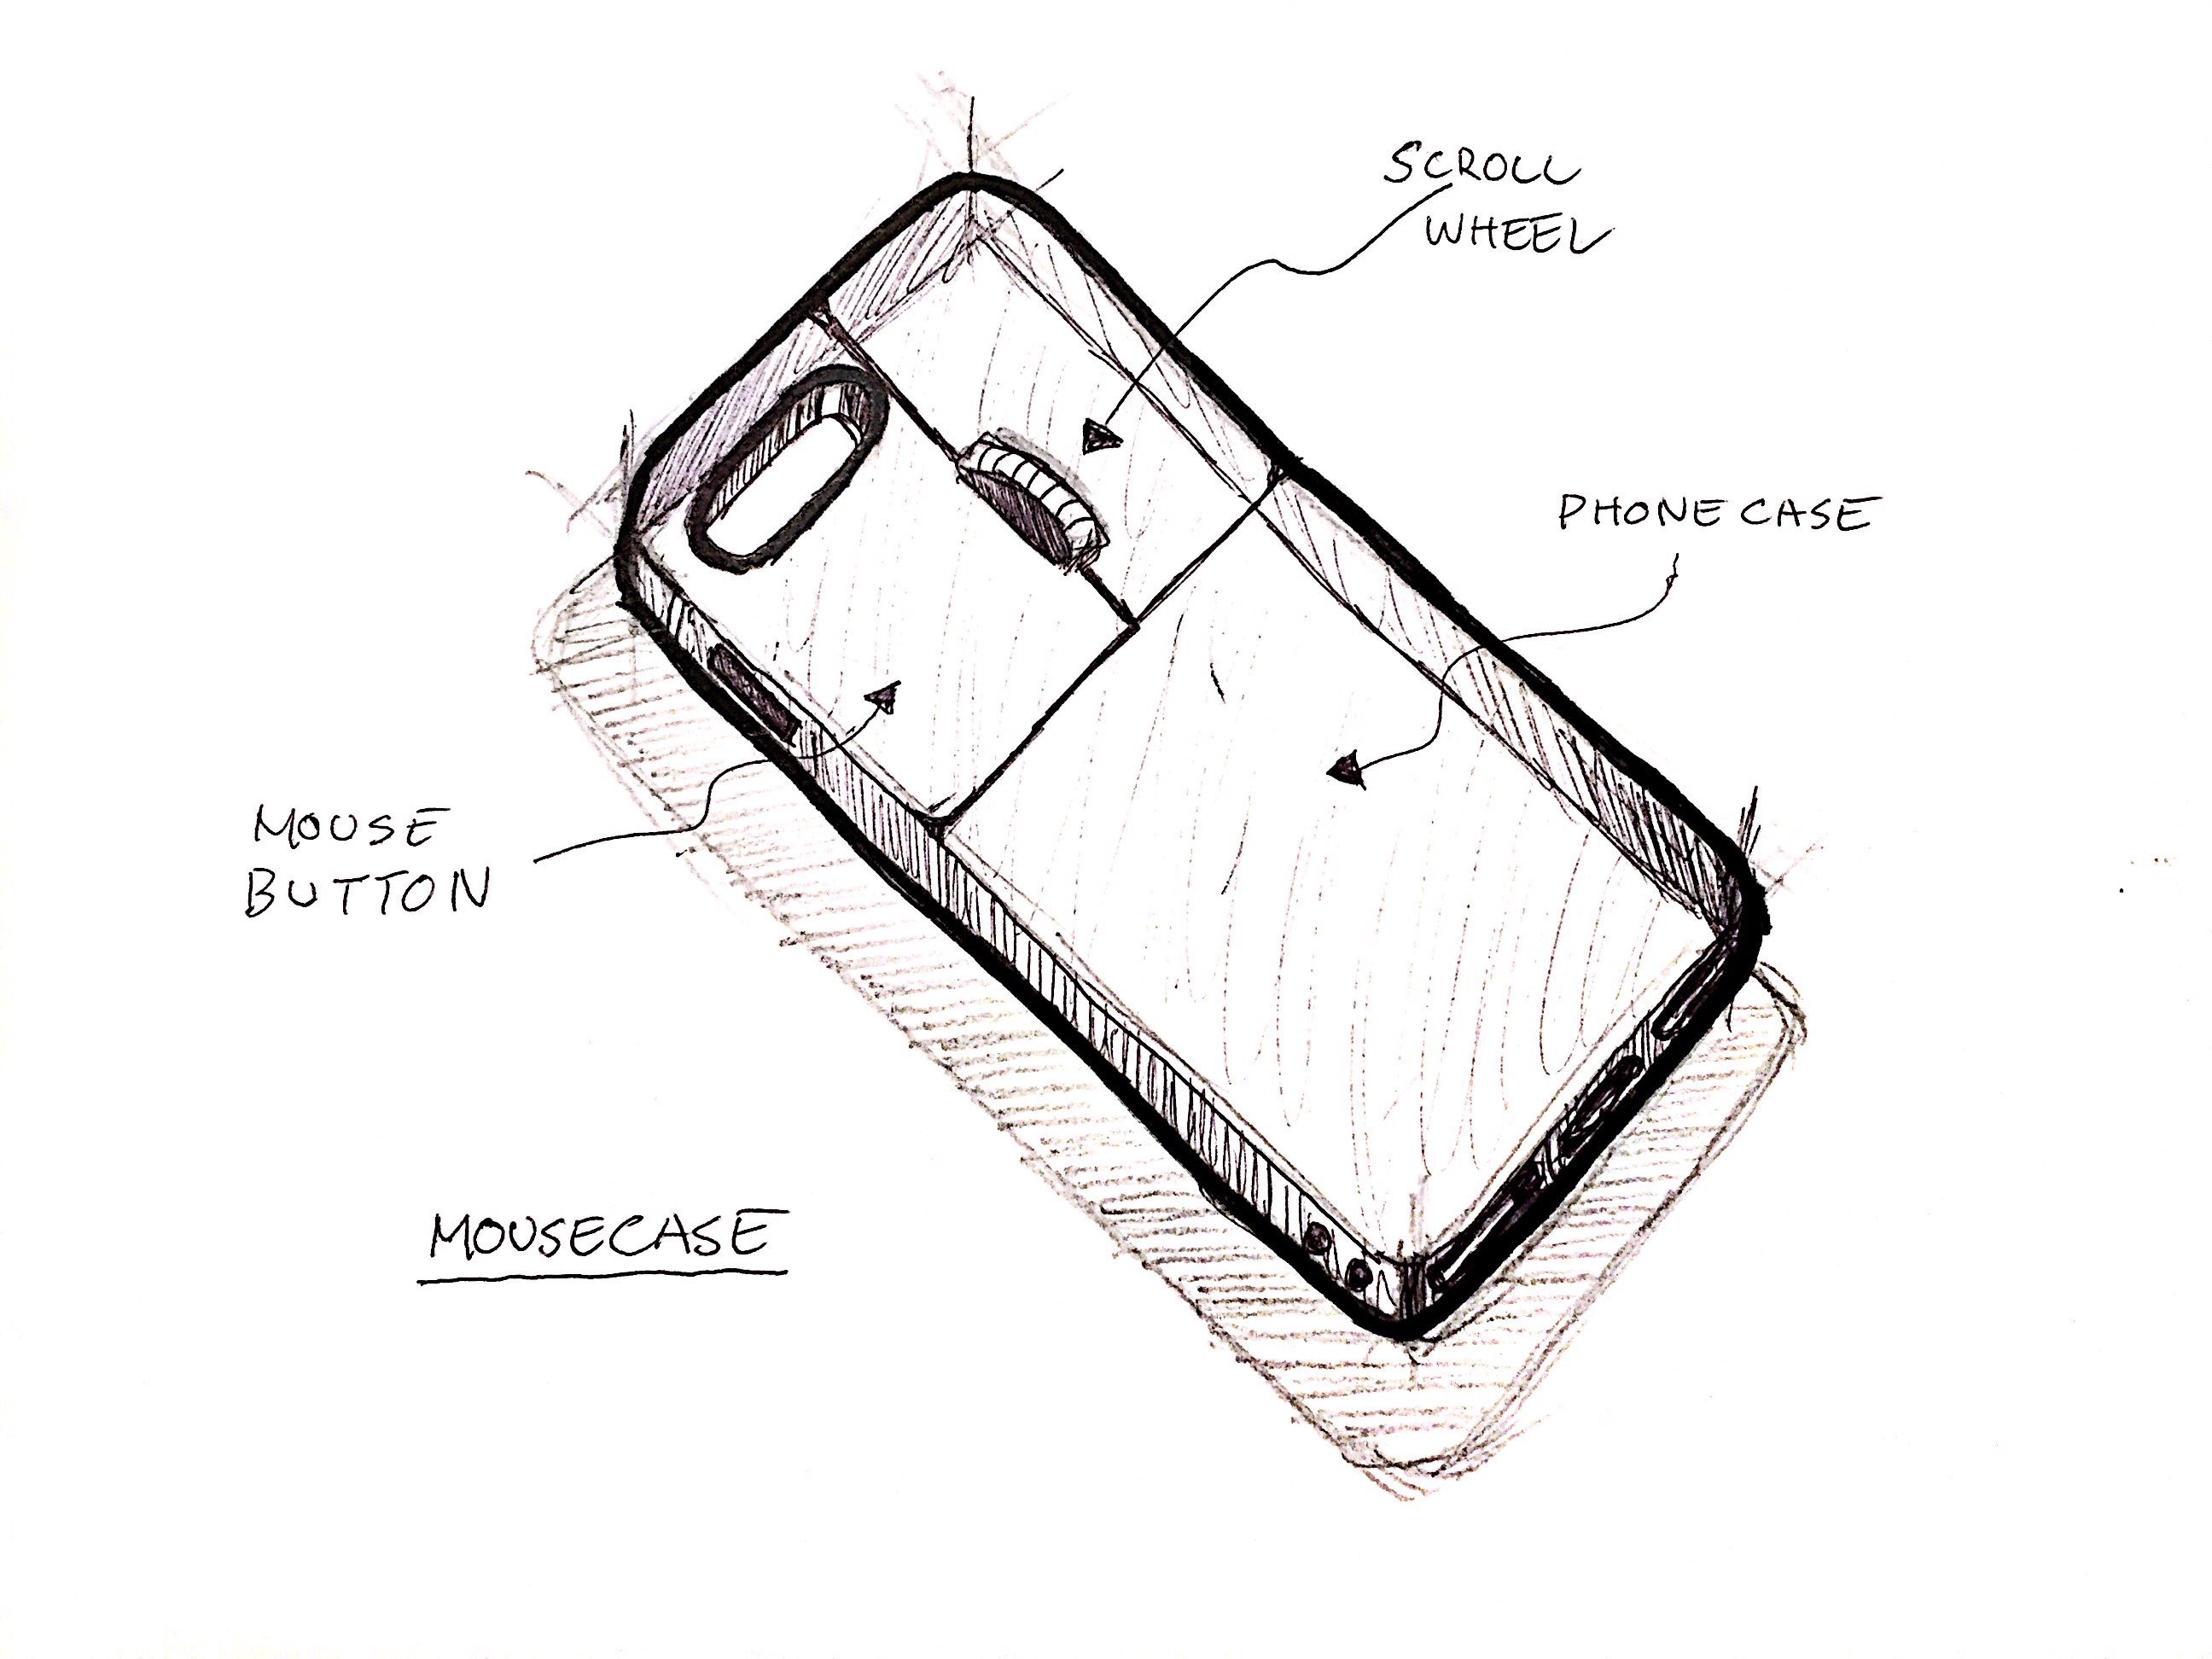 SCROLL
WHEEL
PHONE CASE
MOUSE
BUTTON
MOUSECASE